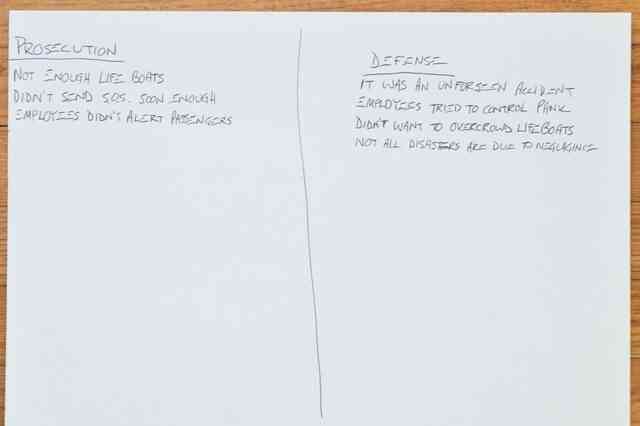 PROSECUTION
NOT ENOUGH LIFE BOATS
DIDN'T SEND S.O.S. SOON ENOUGH
EMPLOYEES DIDN'T ALERT PASSENGERS
DEFENSE
IT WAS AN UNFORSEEN ACCIDENT
EMPLOYEES TRIED TO CONTROL PANIC
DIDN'T WANT TO OVERCROWD LIFEBOATS
NOT ALL DISASTERS ARE DUE TO NEGLAGINCE